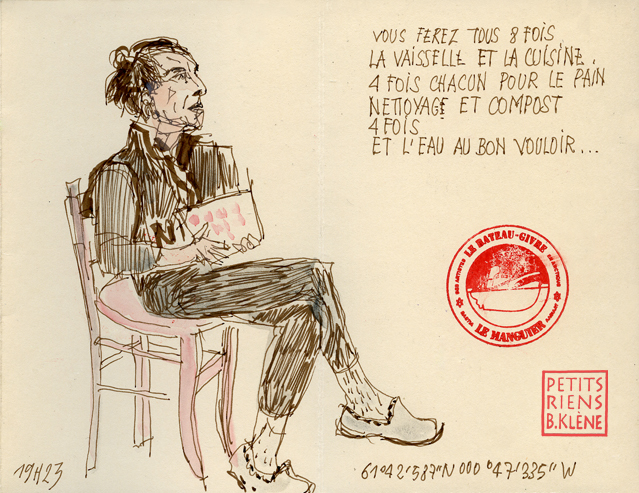 VOUS FEREZ TOUS 8 FOIS
LA VAISSELLE ET LA CUISINE.
4 FOIS CHACUN POUR LE PAIN
NETTOYAGE ET COMPOST
4 FOIS
ET L'EAU AU BON VOULOIR...
LE BATEAU-GIVRE
LE MANGUIER
PETITS
RIENS
B.KLÈNE
19H23
61°42'587"N 000°47'335"W